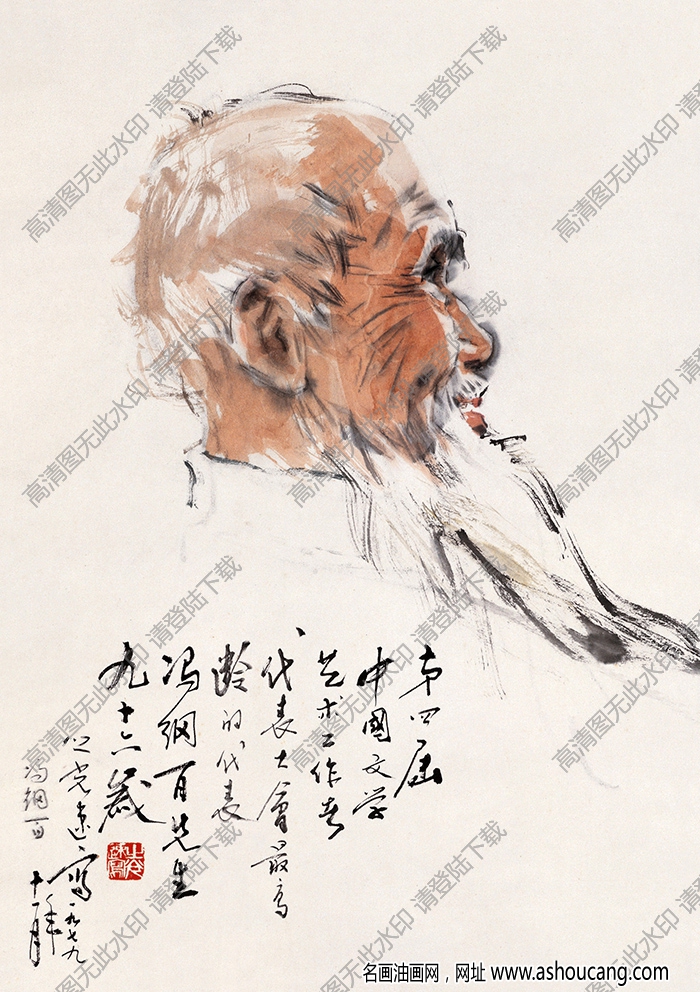 第四届
中國文学
艺术工作者
代表大會最高
龄的代表
冯纲百先生
九十六歲
之光速写一九七九年
十一月
冯纲百
高清图无此水印 请登陆下载
名画油画网，网址 www.ashoucang.com